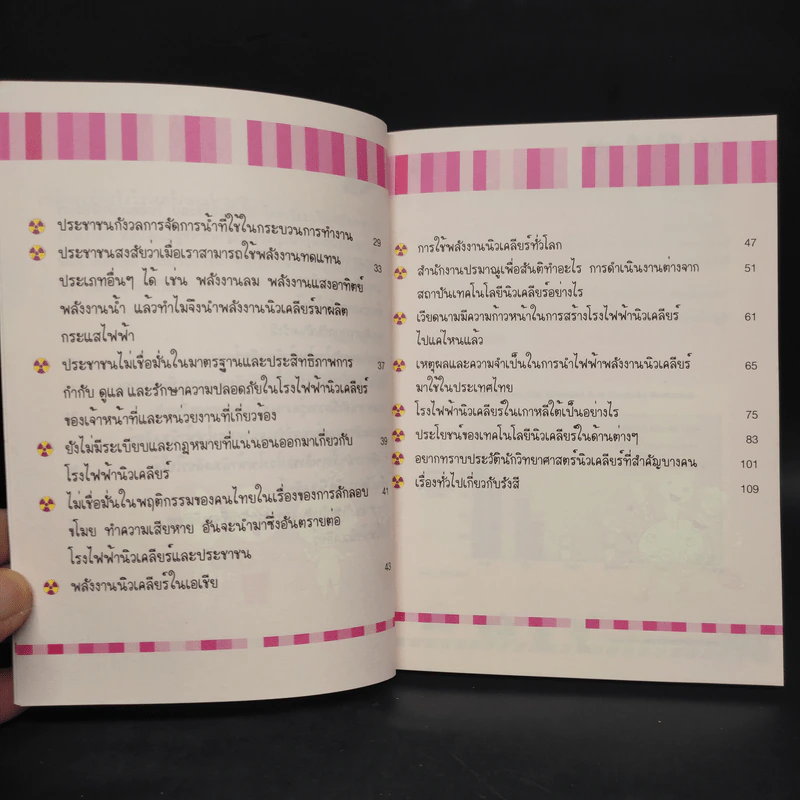 ประชาชนกังวลการจัดการน้ำที่ใช้ในกระบวนการทำงาน 29
ประชาชนสงสัยว่าเมื่อเราสามารถใช้พลังงานทดแทน 33
ประเภทอื่นๆ ได้ เช่น พลังงานลม พลังงานแสงอาทิตย์
พลังงานน้ำ แล้วทำไมจึงนำพลังงานนิวเคลียร์มาผลิต
กระแสไฟฟ้า
ประชาชนไม่เชื่อมั่นในมาตรฐานและประสิทธิภาพการ 37
กำกับ ดูแล และรักษาความปลอดภัยในโรงไฟฟ้านิวเคลียร์
ของเจ้าหน้าที่และหน่วยงานที่เกี่ยวข้อง
ยังไม่มีระเบียบและกฎหมายที่แน่นอนออกมาเกี่ยวกับ 39
โรงไฟฟ้านิวเคลียร์
ไม่เชื่อมั่นในพฤติกรรมของคนไทยในเรื่องของการลักลอบ 41
ขโมย ทำความเสียหาย อันจะนำมาซึ่งอันตรายต่อ
โรงไฟฟ้านิวเคลียร์และประชาชน
พลังงานนิวเคลียร์ในเอเชีย 43
การใช้พลังงานนิวเคลียร์ทั่วโลก 47
สำนักงานปรมาณูเพื่อสันติทำอะไร การดำเนินงานต่างจาก 51
สถาบันเทคโนโลยีนิวเคลียร์อย่างไร
เวียดนามมีความก้าวหน้าในการสร้างโรงไฟฟ้านิวเคลียร์ 61
ไปแค่ไหนแล้ว
เหตุผลและความจำเป็นในการนำไฟฟ้าพลังงานนิวเคลียร์ 65
มาใช้ในประเทศไทย
โรงไฟฟ้านิวเคลียร์ในเกาหลีใต้เป็นอย่างไร 75
ประโยชน์ของเทคโนโลยีนิวเคลียร์ในด้านต่างๆ 83
อยากทราบประวัตินักวิทยาศาสตร์นิวเคลียร์ที่สำคัญบางคน 101
เรื่องทั่วไปเกี่ยวกับรังสี 109